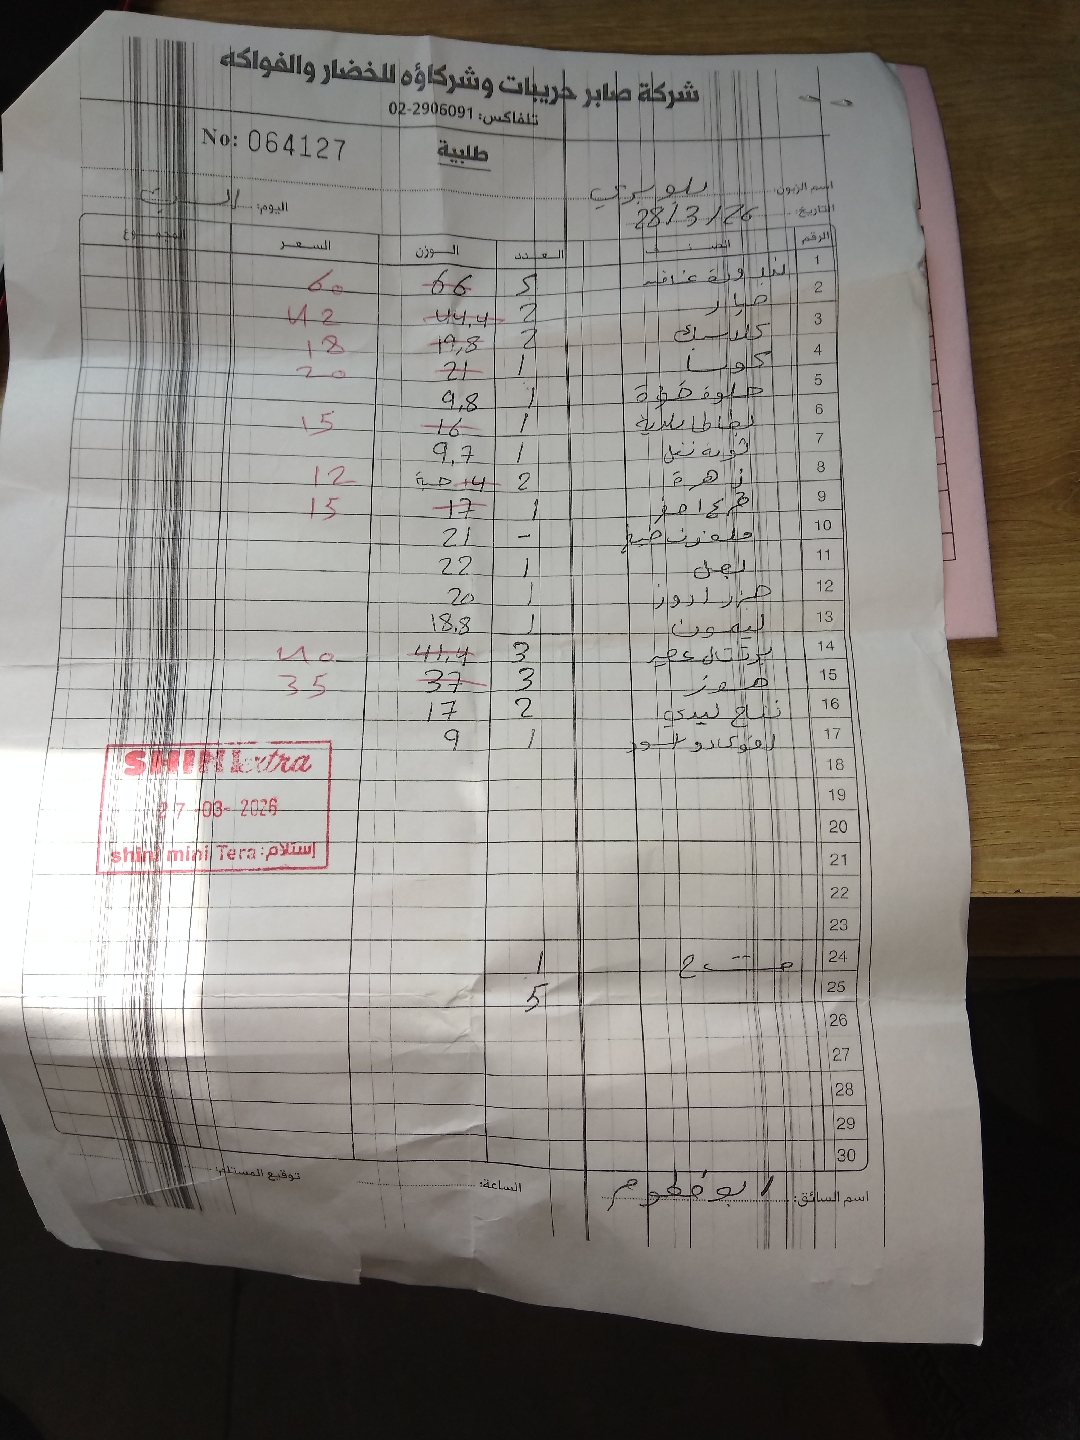 شركة صابر حريبات وشركاؤه للخضار والفواكه
تلفاكس: 02-2906091
No: 064127
طلبية
اسم الزبون: بلو بيري
التاريخ: 28/3/26 اليوم: السبت
الرقم الصنف العدد الوزن السعر المجموع
1 بندورة 5 66 60
2 خيار 2 44,4 42
3 كلاسيك 2 19,8 18
4 كوسا 1 21 20
5 1 9,8
6 بطاطا بلدية 1 16 15
7 1 9,7
8 زهرة 2 14 حبة 12
9 1 17 15
10 - 21
11 بصل 1 22
12 1 20
13 ليمون 1 18.8
14 برتقال عصير 3 41,4 40
15 موز 3 37 35
16 تفاح 2 17
17 1 9
18
19
20
21
22
23
24 1
25 5
26
27
28
29
30
SHINI extra
27-03-2026
إستلام: shini mini Tera
اسم السائق: الساعة: توقيع المستلم: